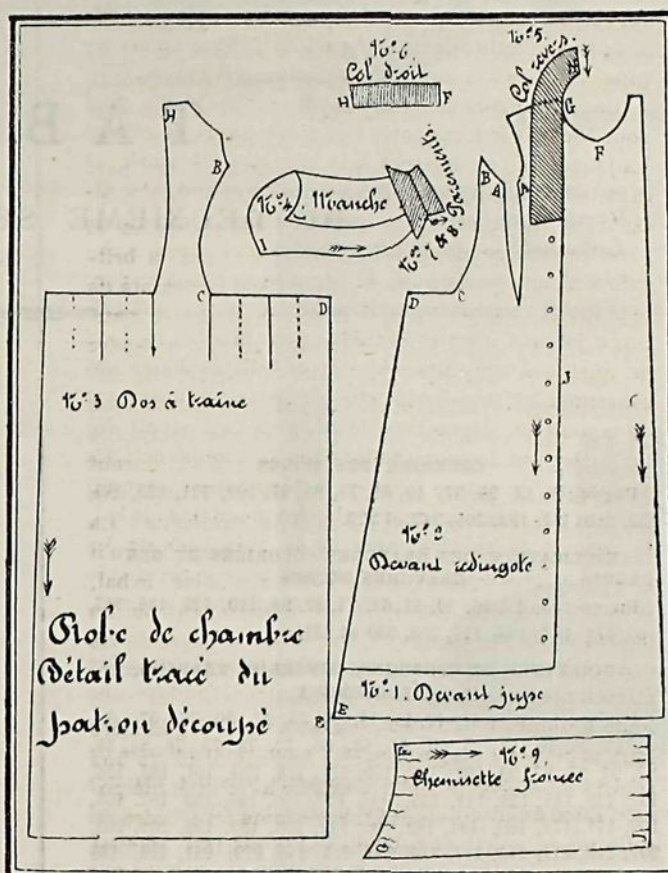 N.º 6.
Col droit
H F
N.º 5.
Col revers.
H
G
F
A
H
B
N.º 4. Manche
I
N.os 7 & 8. Parements
B
A
C
D
D
C
N.º 3 Dos à traine
J
N.º 2
Devant redingote
Robe de chambre
Détail tracé du
patron découpé
E
E
N.º 1. Devant jupe
N.º 9.
Chemisette froncée
G
J